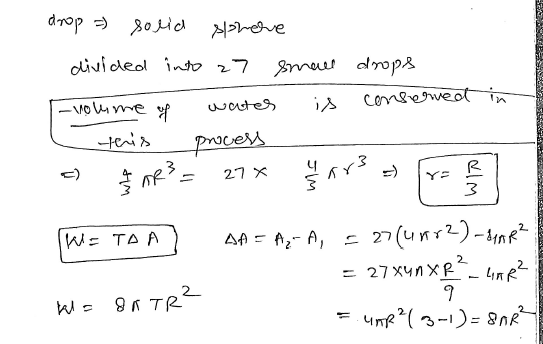 drop ⇒ solid sphere
divided into 27 small drops
-volume of water is conserved in
this process
⇒) 4/3 πR³ = 27 × 4/3 πr³ ⇒ r = R/3
W = TΔA ΔA = A₂ - A₁ = 27(4πr²) - 4πR²
= 27×4π×R²/9 - 4πR²
W = 8πTR² = 4πR²(3-1) = 8πR²